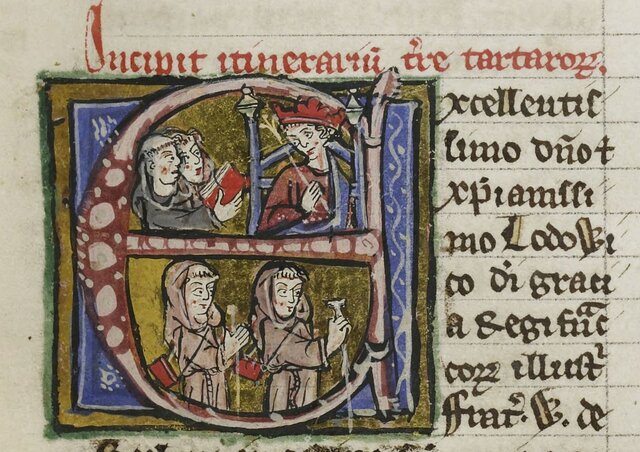 Incipit itinerariū t̄re tartaroꝝ.
Excellentis
simo dn̄o ⁊
xp̄ianissi
mo Lodowi
co di graci
a Regi frāc
coꝝ illust̄
ffrat̄. W. de